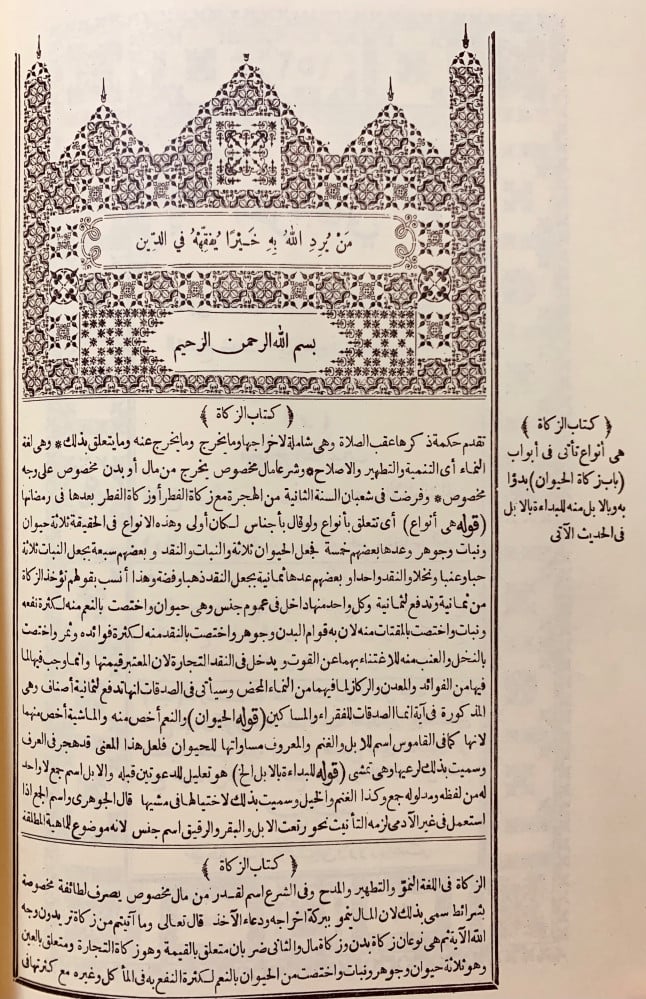 مَنْ يُرِدِ اللهُ بِهِ خَيْرًا يُفَقِّهْهُ فِي الدِّينِ
بسم الله الرحمن الرحيم
﴿ كتاب الزكاة ﴾
تقدم حكمة ذكرها عقب الصلاة وهى شاملة لاخراجها وما يخرج وما يخرج عنه وما يتعلق بذلك * وهى لغة
النماء أى التنمية والتطهير والاصلاح * وشرعا مال مخصوص يخرج من مال أو بدن مخصوص على وجه
مخصوص * وفرضت فى شعبان السنة الثانية من الهجرة مع زكاة الفطر أو زكاة الفطر بعدها فى رمضانها
(قوله هى أنواع) أى تتعلق بأنواع ولو قال بأجناس لكان أولى وهذه الانواع فى الحقيقة ثلاثة حيوان
ونبات وجوهر وعدها بعضهم خمسة فجعل الحيوان ثلاثة والنبات والنقد و بعضهم سبعة بجعل النبات ثلاثة
حبا وعنبا ونخلا والنقد واحدا و بعضهم عدها ثمانية بجعل النقد ذهبا وفضة وهذا أنسب بقولهم تؤخذ الزكاة
من ثمانية وتدفع لثمانية وكل واحد منها داخل فى عموم جنس وهى حيوان واختصت بالنعم منه لكثرة نفعه
ونبات واختصت بالمقتات منه لان به قوام البدن وجوهر واختصت بالنقد منه لكثرة فوائده وثمر واختصت
بالنخل والعنب منه للاغتناء بهما عن القوت و يدخل فى النقد التجارة لان المعتبر قيمتها وانما وجب فيها لما
فيها من الفوائد والمعدن والركاز لما فيهما من النماء المحض وسيأتى فى الصدقات انها تدفع لثمانية أصناف وهى
المذكورة فى آية انما الصدقات للفقراء والمساكين (قوله الحيوان) والنعم أخص منه والماشية أخص منهما
لانها كما فى القاموس اسم للابل والغنم والمعروف مساواتها للحيوان فلعل هذا المعنى قد هجر فى العرف
وسميت بذلك لرعيها وهى تمشى (قوله للبداءة بالابل الخ) هو تعليل للدعوتين قبله والابل اسم جمع لا واحد
له من لفظه ومدلوله جمع وكذا الغنم والخيل وسميت بذلك لاختيالها فى مشيها قال الجوهرى واسم الجمع اذا
استعمل فى غير الآدمى لزمه التأنيث نحو رتعت الابل والبقر والرقيق اسم جنس لانه موضوع للماهية المطلقة
﴿ كتاب الزكاة ﴾
الزكاة فى اللغة النمو والتطهير والمدح وفى الشرع اسم لقدر من مال مخصوص يصرف لطائفة مخصوصة
بشرائط سمى بذلك لان المال ينمو ببركة اخراجه ودعاء الآخذ قال تعالى وما آتيتم من زكاة تريدون وجه
الله الآية ثم هى نوعان زكاة بدن وزكاة مال والثانى ضربان متعلق بالقيمة وهو زكاة التجارة ومتعلق بالعين
وهو ثلاثة حيوان وجوهر ونبات واختصت من الحيوان بالنعم لكثرة النفع به فى المأكل وغيره مع كثرتها فى
﴿ كتاب الزكاة ﴾
هى أنواع تأتى فى أبواب
(باب زكاة الحيوان) بدؤا
به وبالابل منه للبداءة بالابل
فى الحديث الآتى